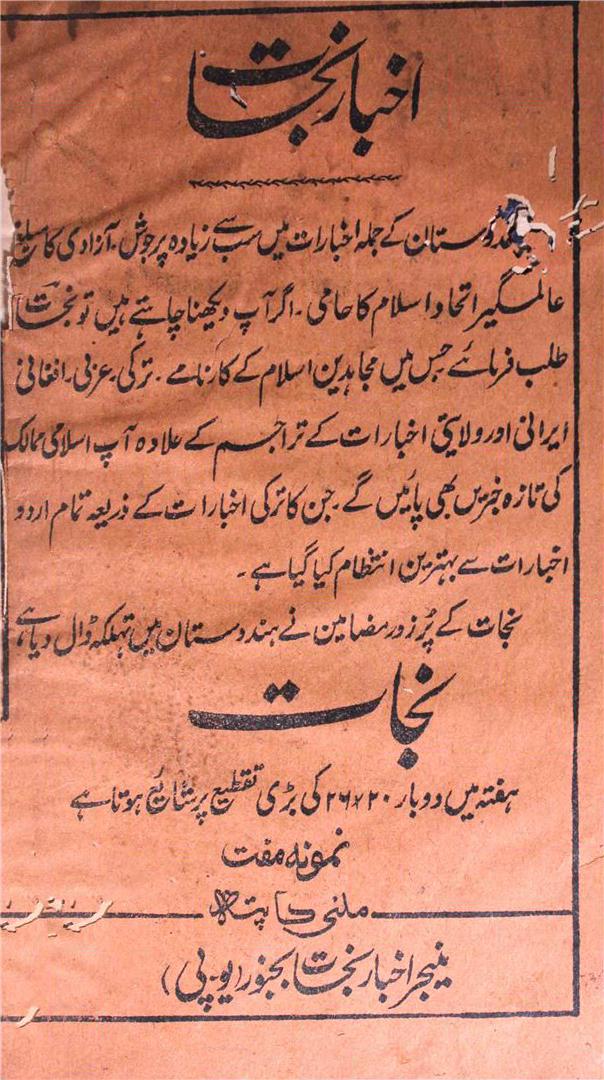 اخبار نجات
ہندوستان کے جملہ اخبارات میں سب سے زیادہ پرجوش، آزادی کا مبلغ
عالمگیر اتحاد اسلام کا حامی۔ اگر آپ دیکھنا چاہتے ہیں تو نجات
طلب فرمائے جس میں مجاہدین اسلام کے کارنامے۔ ترکی۔ عربی۔ افغانی
ایرانی اور ولایتی اخبارات کے تراجم کے علاوہ آپ اسلامی ممالک
کی تازہ خبریں بھی پائیں گے۔ جن کا ترکی اخبارات کے ذریعہ تمام اردو
اخبارات سے بہترین انتظام کیا گیا ہے۔
نجات کے پُرزور مضامین نے ہندوستان میں تہلکہ ڈال دیا ہے
نجات
ہفتہ میں دوبار ۲۰×۲۶ کی بڑی تقطیع پر شایع ہوتا ہے
نمونہ مفت
ملنی کا پتہ
منیجر اخبار نجات بجنور (یو۔پی)